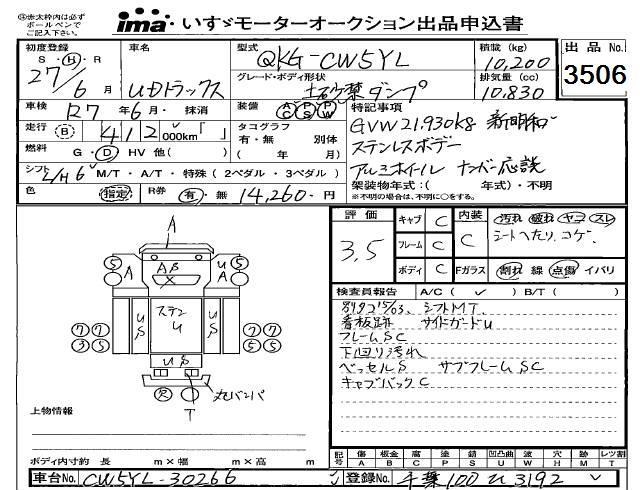 ㊟赤太枠内は必ず
ボールペンで
ご記入下さい。
ima いすゞモーターオークション出品申込書
初度登録 車名 型式 QKG-CW5YL 積載(kg) 10,200 出品No. 3506
S・H・R 27/6月 UDトラックス グレード・ボディ形状 土砂禁ダンプ 排気量(cc) 10,830
車検 R7年6月・抹消 装備 AC PS PW 特記事項
走行 B 412,000km「 」 タコグラフ 有・無 別体 GVW21,930kg 新明和
燃料 G・D・HV 他( ) ( 年 月) ステンレスボデー
シフト L/H 6 M/T・A/T・特殊(2ペダル・3ペダル) アルミホイール ナンバー応談
架装物年式:( 年式)・不明
色 指定 R券 有・無 14,260-円 ※不明の場合は、不明に○をする。
評価 3.5 キャブ C 内装 C 汚れ 破れ ヤニ スレ
フレーム C シートへたり、コゲ
ボディ C Fガラス 割れ 線 点傷 イバリ
検査員報告 A/C( ✓ ) B/T( )
シフトMT
看板跡 サイドガードU
フレームSC
下回り汚れ
ベッセルS サブフレームSC
キャブバックC
A
5 A AB X UA 5
US ステンU US
7 7 3 5 7 7 5 5
US
R 丸バンパ
T
上物情報
ボディ内寸約 長 m×幅 m×高 m
記号 傷A 板金B 腐C 塗P 錆S 凹凸曲U 波W 穴H 跡M レツ割T
車台No. CW5YL-30266 登録No. 千葉100 ひ3192